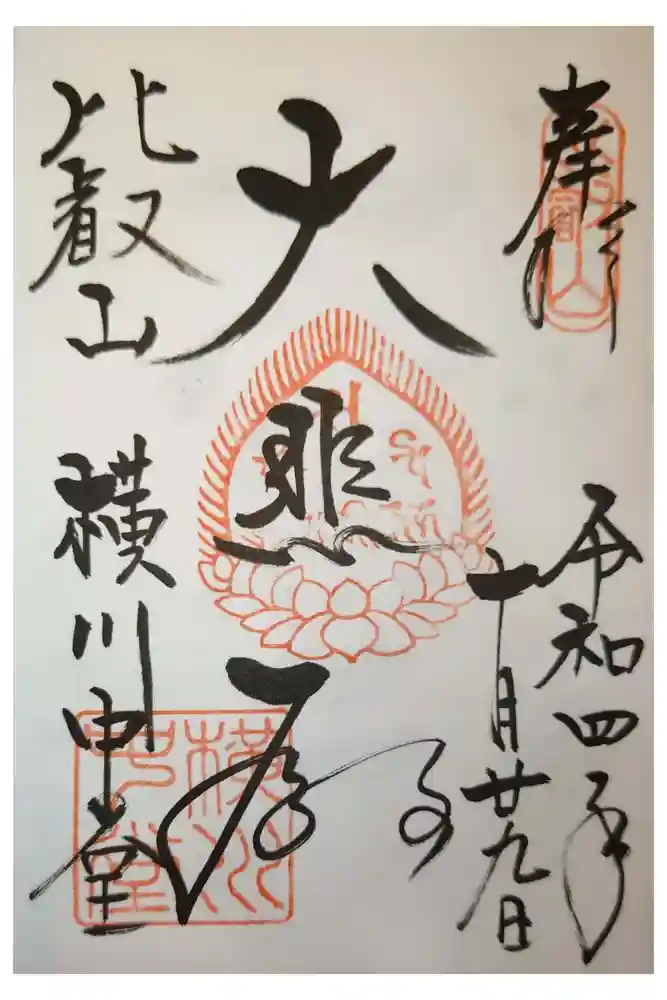 奉拝
令和四年
十月廿九日
大悲殿
比叡山
横川中堂
比叡山
横川中堂